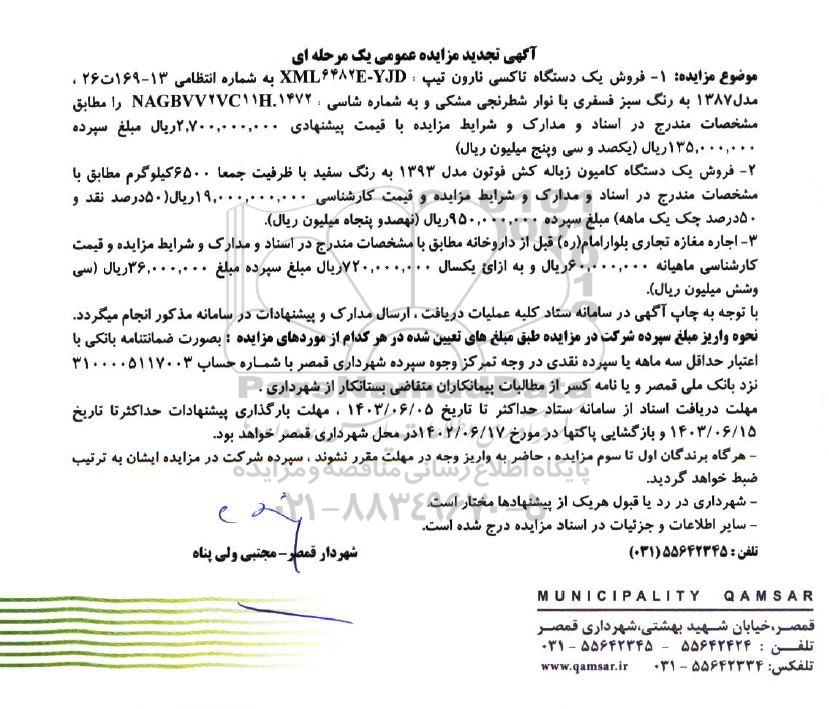 آگهی تجدید مزایده عمومی یک مرحله ای
موضوع مزایده: ۱- فروش یک دستگاه تاکسی نارون تیپ : XML۶۴۸۲E-YJD به شماره انتظامی ۱۳-۱۶۹ت۲۶ ،
مدل۱۳۸۷ به رنگ سبز فسفری با نوار شطرنجی مشکی و به شماره شاسی : NAGBVV۲VC۱۱H.۱۴۷۲ را مطابق
مشخصات مندرج در اسناد و مدارک و شرایط مزایده با قیمت پیشنهادی ۲,۷۰۰,۰۰۰,۰۰۰ریال مبلغ سپرده
۱۳۵,۰۰۰,۰۰۰ریال (یکصد و سی وپنج میلیون ریال)
۲- فروش یک دستگاه کامیون زباله کش فوتون مدل ۱۳۹۳ به رنگ سفید با ظرفیت جمعا ۶۵۰۰کیلوگرم مطابق با
مشخصات مندرج در اسناد و مدارک و شرایط مزایده و قیمت کارشناسی ۱۹,۰۰۰,۰۰۰,۰۰۰ریال(۵۰درصد نقد و
۵۰درصد چک یک ماهه) مبلغ سپرده ۹۵۰,۰۰۰,۰۰۰ریال (نهصدو پنجاه میلیون ریال).
۳- اجاره مغازه تجاری بلوارامام(ره) قبل از داروخانه مطابق با مشخصات مندرج در اسناد و مدارک و شرایط مزایده و قیمت
کارشناسی ماهیانه ۶۰,۰۰۰,۰۰۰ریال و به ازائ یکسال ۷۲۰,۰۰۰,۰۰۰ریال مبلغ سپرده مبلغ ۳۶,۰۰۰,۰۰۰ریال (سی
وشش میلیون ریال).
با توجه به چاپ آگهی در سامانه ستاد کلیه عملیات دریافت ، ارسال مدارک و پیشنهادات در سامانه مذکور انجام میگردد.
نحوه واریز مبلغ سپرده شرکت در مزایده طبق مبلغ های تعیین شده در هر کدام از موردهای مزایده : بصورت ضمانتنامه بانکی با
اعتبار حداقل سه ماهه یا سپرده نقدی در وجه تمرکز وجوه سپرده شهرداری قمصر با شماره حساب ۳۱۰۰۰۰۵۱۱۷۰۰۳
نزد بانک ملی قمصر و یا نامه کسر از مطالبات پیمانکاران متقاضی بستانکار از شهرداری .
مهلت دریافت اسناد از سامانه ستاد حداکثر تا تاریخ ۱۴۰۳/۰۶/۰۵ ، مهلت بارگذاری پیشنهادات حداکثرتا تاریخ
۱۴۰۳/۰۶/۱۵ و بازگشایی پاکتها در مورخ ۱۴۰۲/۰۶/۱۷در محل شهرداری قمصر خواهد بود.
- هرگاه برندگان اول تا سوم مزایده ، حاضر به واریز وجه در مهلت مقرر نشوند ، سپرده شرکت در مزایده ایشان به ترتیب
ضبط خواهد گردید.
- شهرداری در رد یا قبول هریک از پیشنهادها مختار است.
- سایر اطلاعات و جزئیات در اسناد مزایده درج شده است.
تلفن : ۵۵۶۴۲۳۴۵ (۰۳۱)
شهردار قمصر- مجتبی ولی پناه
ParsNamadData
پایگاه اطلاع رسانی مناقصه و مزایده
۰۲۱-۸۸۳۴۹۶۷۰-۵
MUNICIPALITY QAMSAR
قمصر،خیابان شهید بهشتی،شهرداری قمصر
تلفن : ۵۵۶۴۲۴۲۴ - ۵۵۶۴۲۳۴۵ - ۰۳۱
تلفکس: ۵۵۶۴۲۳۳۴ - ۰۳۱ www.qamsar.ir